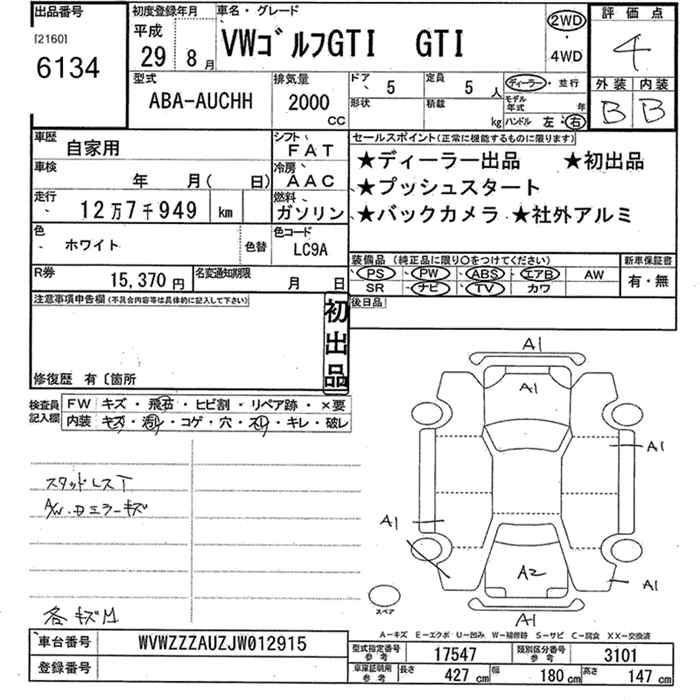 出品番号
[2160]
6134
初度登録年月
平成
29 8月
車名・グレード
VWゴルフGTI GTI
2WD
・
4WD
評価点
4
外装 内装
B B
型式
ABA-AUCHH
排気量
2000
CC
ドア 5
定員 5 人
形状
積載 kg
ディーラー・並行
モデル年式 年
ハンドル 左・右
車歴 自家用
シフト FAT
車検 年 月( 日)
冷房 AAC
走行 12万7千949 km
燃料 ガソリン
色 ホワイト
色替
色コード LC9A
R券 15,370円
名変通知期限 月 日
セールスポイント(正常に機能するものに限ります)
★ディーラー出品 ★初出品
★プッシュスタート
★バックカメラ ★社外アルミ
装備品 (純正品に限り○をつけてください)
PS PW ABS エアB AW
SR ナビ TV カワ
新車保証書
有・無
後日品
注意事項申告欄(不具合内容等は具体的に記入して下さい)
初出品
修復歴 有〔箇所
検査員記入欄
FW キズ・飛石・ヒビ割・リペア跡・×要
内装 キズ・汚レ・コゲ・穴・スレ・キレ・破レ
スタッドレスT
A/W.Dミラーキズ
各キズ凹
A1
A1
A1
A1
A2
A1
A1
スペア
A-キズ E-エクボ U-凹み W-補修跡 S-サビ C-腐食 XX-交換済
車台番号 WVWZZZAUZJW012915
登録番号
型式指定番号 参考 17547
類別区分番号 参考 3101
車庫証明用 参考 長さ 427 cm 幅 180 cm 高さ 147 cm